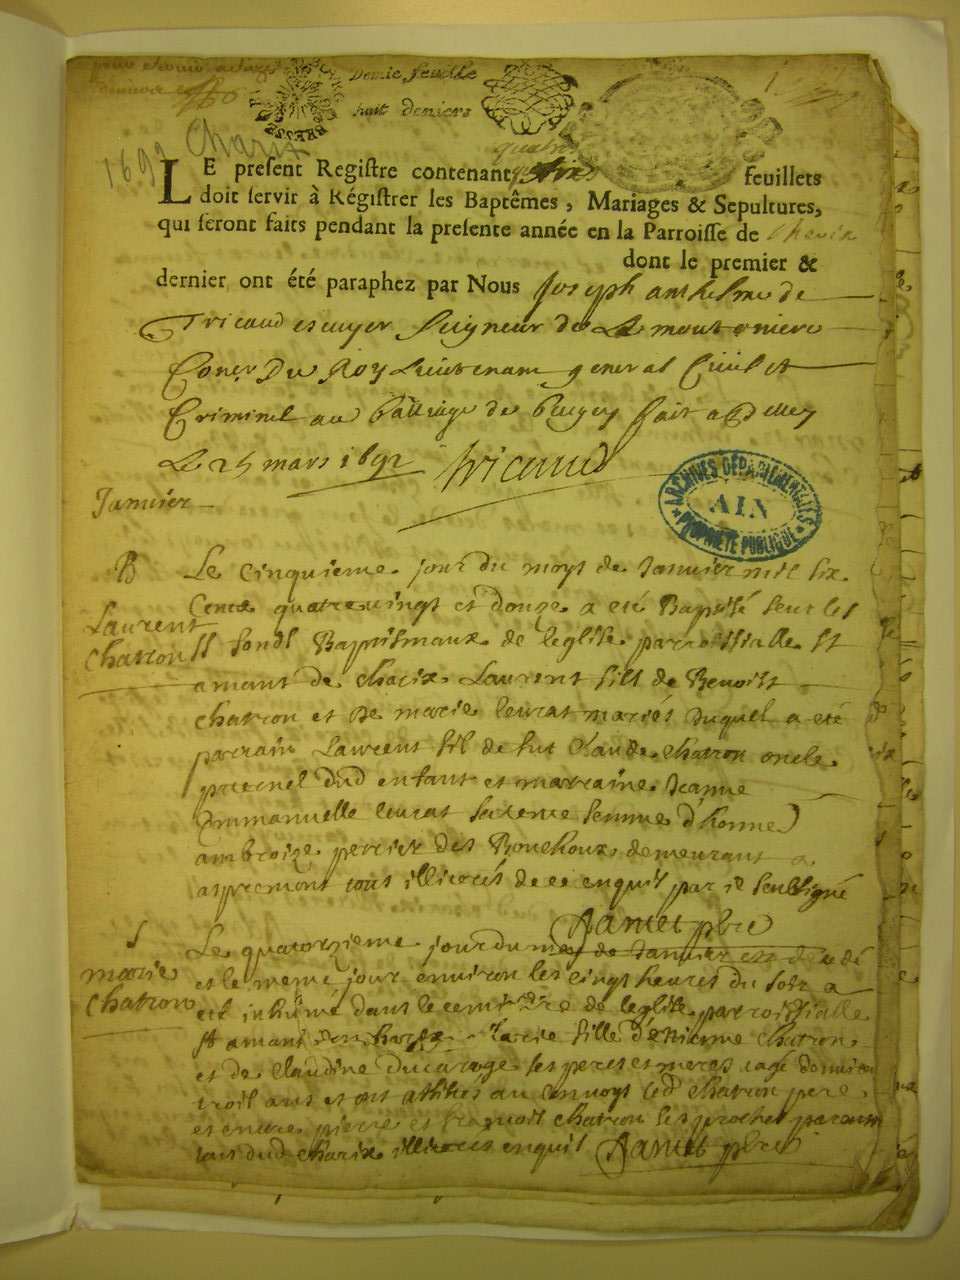 Demie feuille
huit deniers
1
1692 Charix
LE present Registre contenant six feuillets
doit servir à Régistrer les Baptêmes, Mariages & Sepultures,
qui seront faits pendant la presente année en la Parroisse de Cherix
dont le premier &
dernier ont été paraphez par Nous Joseph anthelme de
Tricaud escuyer Seigneur de La moutonniere
Coner Du Roy Lieutenant general Civil et
Criminel au Balliage de Bugey fait a Belley
Le 25 mars 1692 Tricaud
ARCHIVES DÉPARTEMENTALES
AIN
PROPRIÉTÉ PUBLIQUE
Januier
B Le cinquieme jour du moys de Januier mil six
Cents quatre vingt et douze a eté Baptisé sur les
Laurent
Chatron sS fonds Baptismaux de leglise parroissialle St
amant de Charix Laurent fils de Benoist
chatron et de marie leurat mariés duquel a eté
parrain Laurent fil de fut Claude chatron oncle
paternel dud enfant et marraine Jeanne
Emmanuelle leurat femme d'honne
ambroize percier des Bouchoux demeurant a
aspremont tous illiterés de ce enquis par je soubsigné
Ramet pbre
S Le quatorzieme jour du mois de Januier est decedé
marie
et le meme jour environ les cinq heures du soir a
Chatron
eté inhumé dans le cemitiere de leglise parroissialle
St amant de charix marie fille d'Etienne chatron
et de Claudine ducarroge ses peres et meres
trois ans et ont assistés au convoys led chatron pere
et encore pierre et chatron ses proches parents
tous dud charix illiterés enquis Ramet pbre